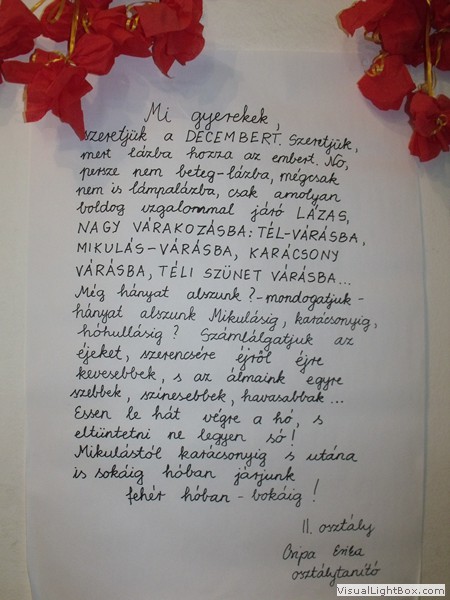 Mi gyerekek,
szeretjük a DECEMBERT. Szeretjük,
mert lázba hozza az embert. No,
persze nem beteg-lázba, mégcsak
nem is lámpalázba, csak amolyan
boldog izgalommal járó LÁZAS,
NAGY VÁRAKOZÁSBA: TÉL-VÁRÁSBA,
MIKULÁS-VÁRÁSBA, KARÁCSONY
VÁRÁSBA, TÉLI SZÜNET VÁRÁSBA...
Még hányat alszunk?-mondogatjuk-
hányat alszunk Mikulásig, karácsonyig,
hóhullásig? Számlálgatjuk az
éjeket, szerencsére éjről éjre
kevesebbek, s az álmaink egyre
szebbek, színesebbek, havasabbak...
Essen le hát végre a hó, s
eltüntetni ne legyen só!
Mikulástól karácsonyig s utána
is sokáig hóban járjunk
fehér hóban - bokáig!
II. osztály
Csipa Erika
osztálytanító
VisualLightBox.com